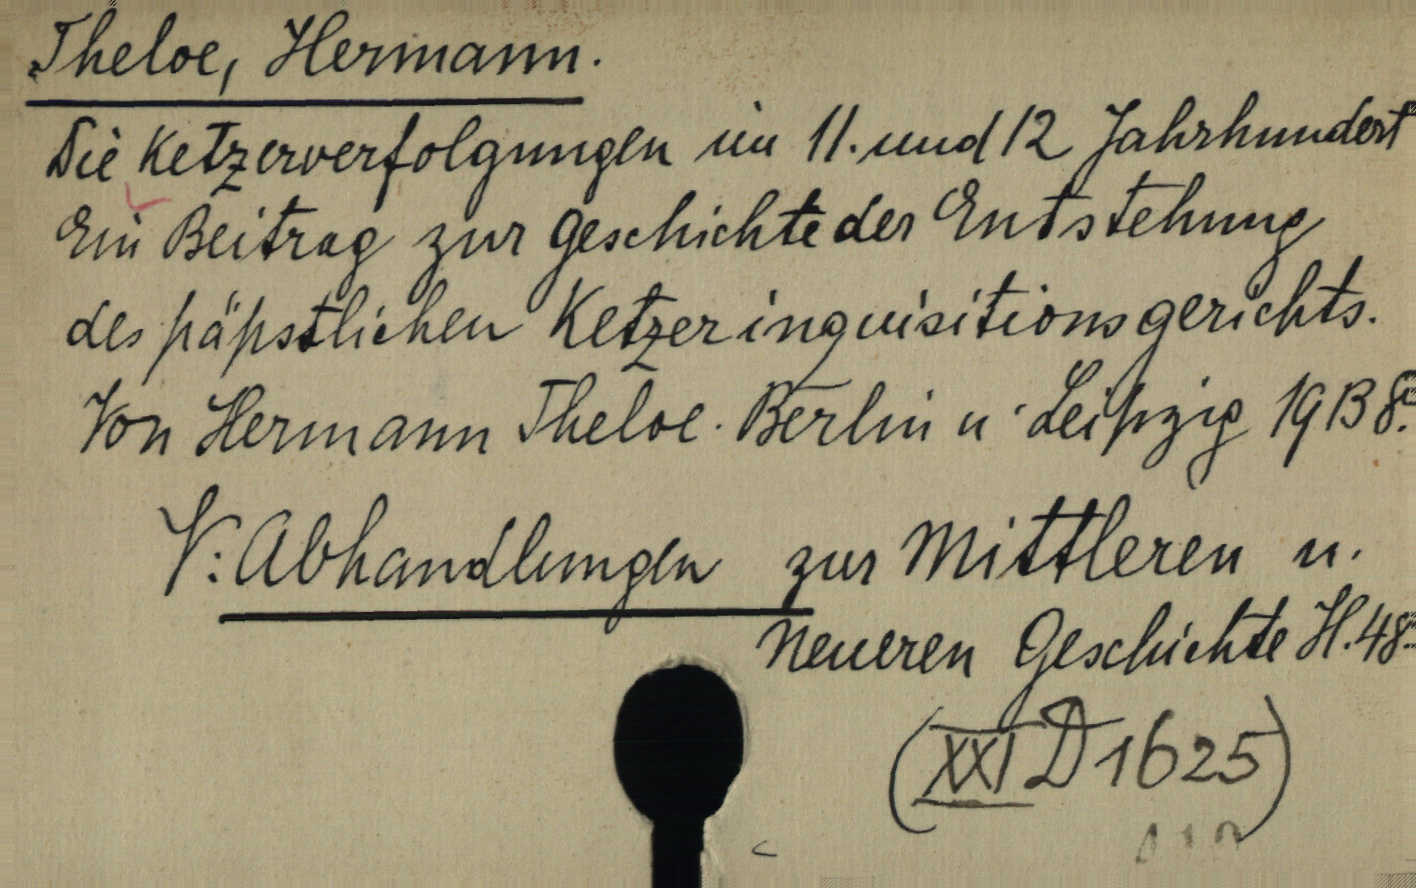 Theloe, Hermann.
Die Ketzerverfolgungen im 11. und 12 Jahrhundert
Ein Beitrag zur Geschichte der Entstehung
des päpstlichen Ketzerinquisitionsgerichts.
Von Hermann Theloe. Berlin u. Leipzig 1913 8.
V: Abhandlungen zur Mittleren u.
Neueren Geschichte H. 48
(XXI D 1625)